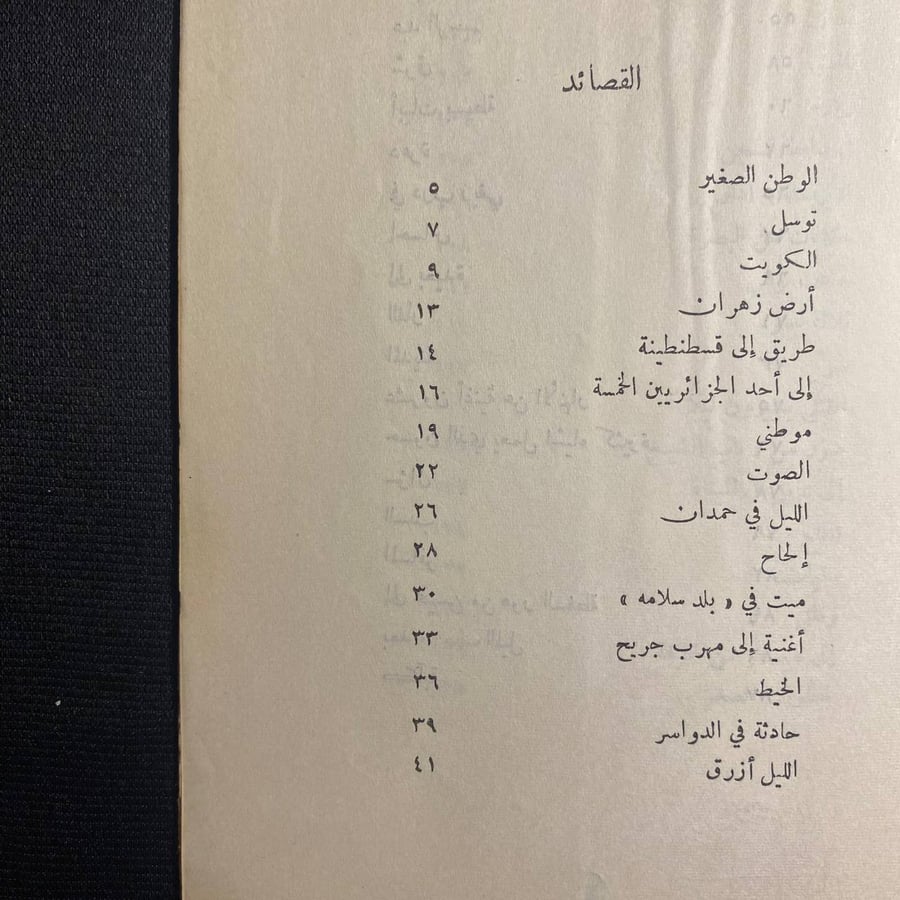 القصائد
الوطن الصغير ٥
توسل ٧
الكويت ٩
أرض زهران ١٣
طريق إلى قسطنطينة ١٤
إلى أحد الجزائريين الخمسة ١٦
موطني ١٩
الصوت ٢٢
الليل في حمدان ٢٦
إلحاح ٢٨
ميت في « بلد سلامه » ٣٠
أغنية إلى مهرب جريح ٣٣
الخيط ٣٦
حادثة في الدواسر ٣٩
الليل أزرق ٤١